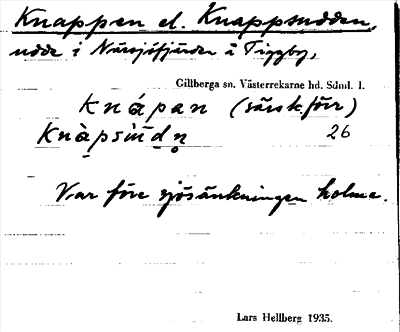 Knappen el. Knappsudden,
udde i Näsnijöfjärden å Tiggby,
Gillberga sn. Västerrekarne hd. Sdml. l.
Knápan (särsk. förr)
Knàpsùdn̥ 26
Var före sjösänkningen holme.
Lars Hellberg 1935.